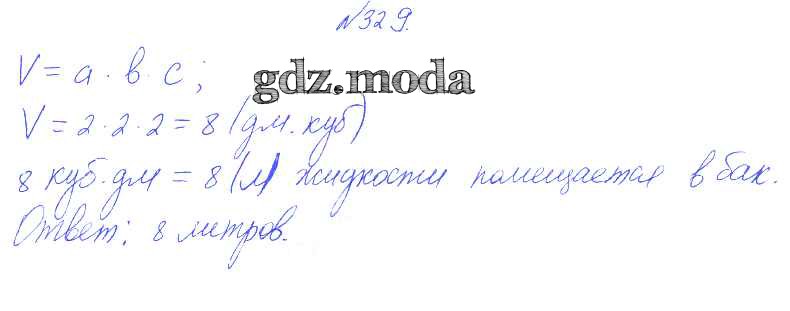 №329.
V = a · в · c ;
gdz.moda
V = 2 · 2 · 2 = 8 (дм. куб)
8 куб. дм = 8 (л) жидкости помещается в бак.
Ответ: 8 литров.